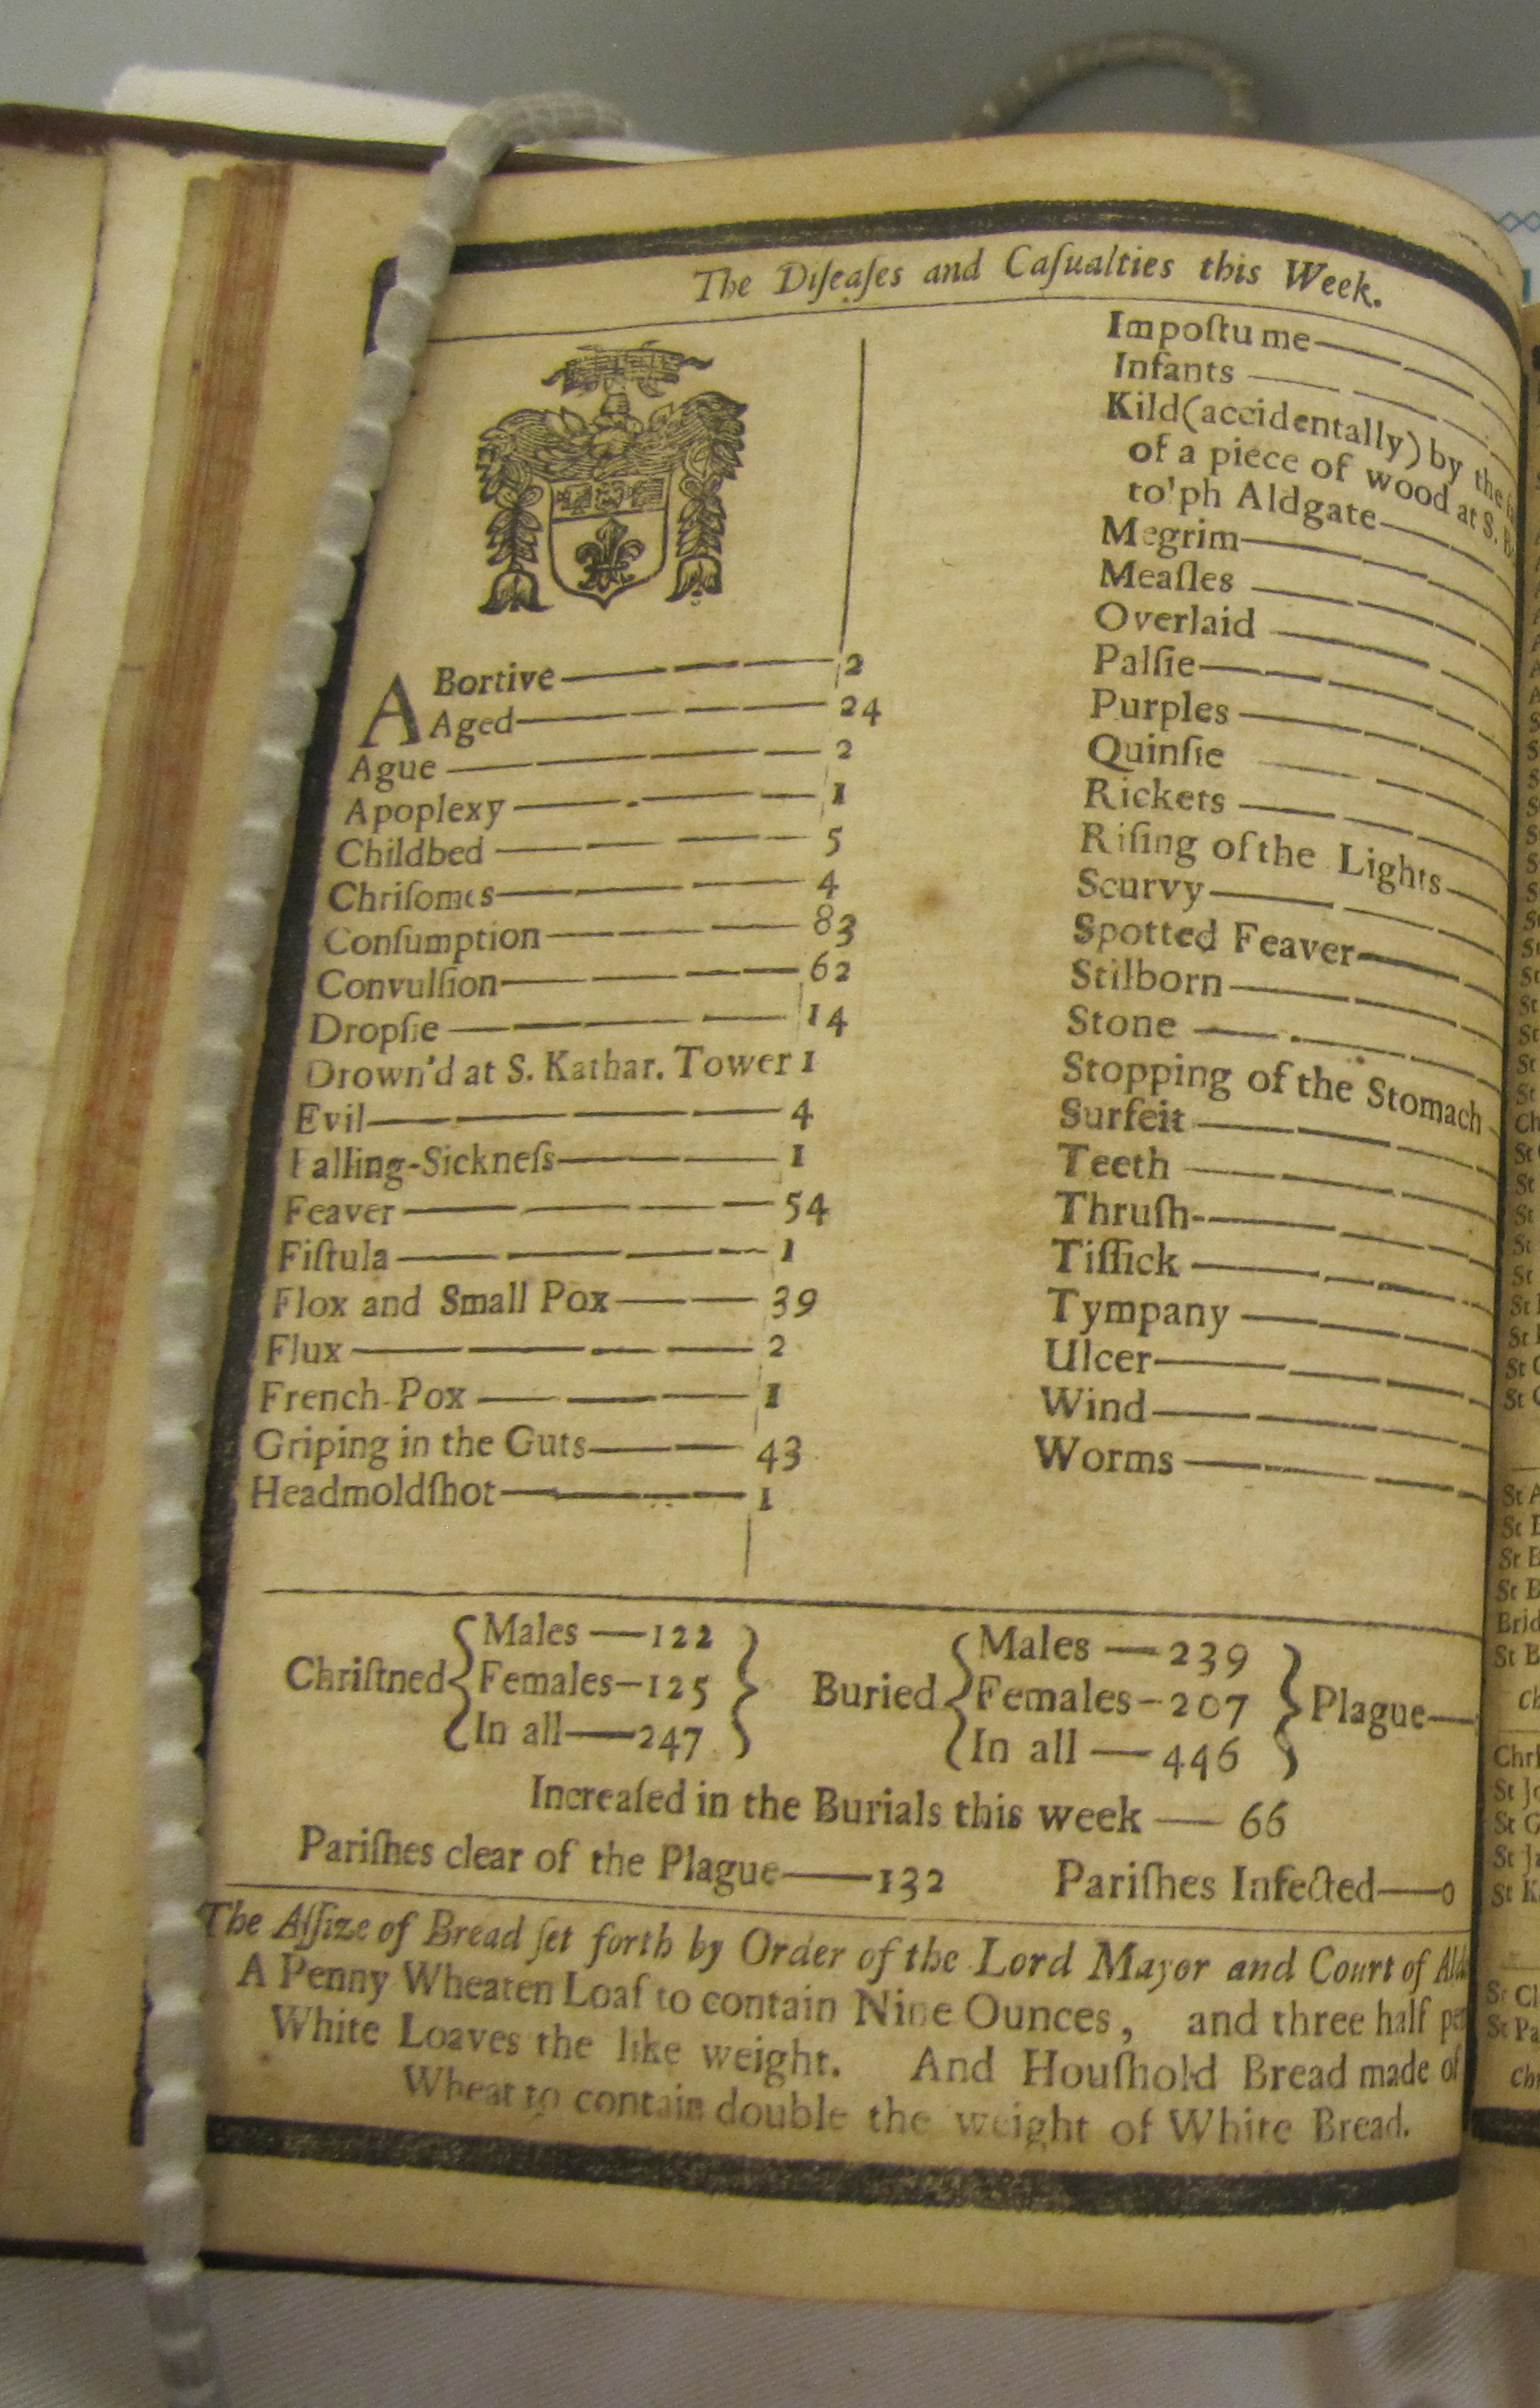 The Diſeaſes and Caſualties this Week.
ABortive — 2
Aged — 24
Ague — 2
Apoplexy — 1
Childbed — 5
Chriſomes — 4
Conſumption — 83
Convulſion — 62
Dropſie — 14
Drown'd at S. Kathar. Tower 1
Evil — 4
Falling-Sickneſs — 1
Feaver — 54
Fiſtula — 1
Flox and Small Pox — 39
Flux — 2
French-Pox — 1
Griping in the Guts — 43
Headmoldſhot — 1
Impoſtume —
Infants —
Kild (accidentally) by the
of a piece of wood at S.
to'ph Aldgate —
Megrim —
Meaſles —
Overlaid —
Palſie —
Purples —
Quinſie —
Rickets —
Riſing of the Lights —
Scurvy —
Spotted Feaver —
Stilborn —
Stone —
Stopping of the Stomach
Surfeit —
Teeth —
Thruſh —
Tiſſick —
Tympany —
Ulcer —
Wind —
Worms —
Chriſtned { Males — 122
Females — 125
In all — 247 }
Buried { Males — 239
Females — 207
In all — 446 } Plague —
Increaſed in the Burials this week — 66
Pariſhes clear of the Plague — 132 Pariſhes Infected — 0
The Aſſize of Bread ſet forth by Order of the Lord Mayor and Court of
A Penny Wheaten Loaf to contain Nine Ounces, and three half
White Loaves the like weight. And Houſhold Bread made of
Wheat to contain double the weight of White Bread.